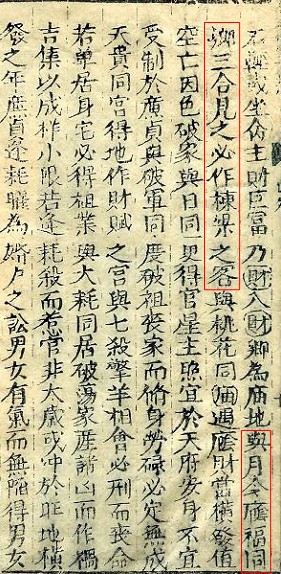 坐仿主財臣富乃財入財鄉為庙地與月令應福同
鄉三合見之必作棟梁之客與桃花同庙遇應財當橫發值
空亡因色破家與日同更得官星主照宜於天府安身不宜
受制於廉貞與破軍同度破祖喪家而脩身勞碌必定無成
天貴同宮得地作財賦之宮與七殺擎羊相會必刑而喪命
若單居身宅必得祖業與大耗同居破蕩家產諸凶而作禍
吉集以成祥小限若逢耗殺而惹官非太歲或冲於旺地橫
發之年逢耗為婚戶之訟男女有氣而無得男女